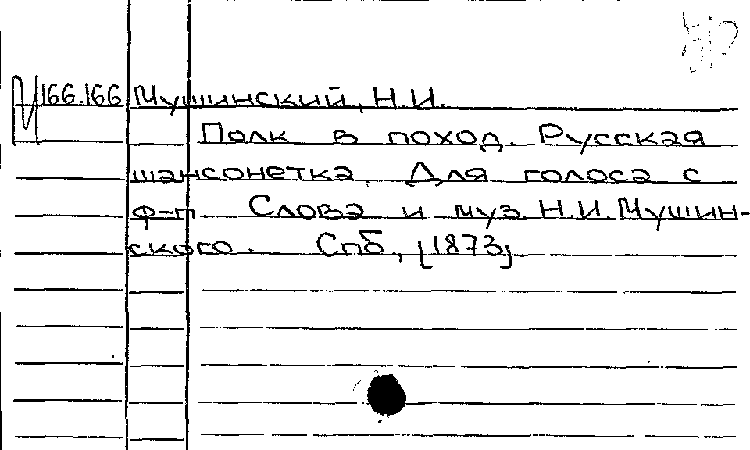 166.166 Мушинский, Н.И.
Полк в поход. Русская
шансонетка. Для голоса с
ф-п. Слова и муз. Н.И. Мушин-
ского. Спб., [1873]